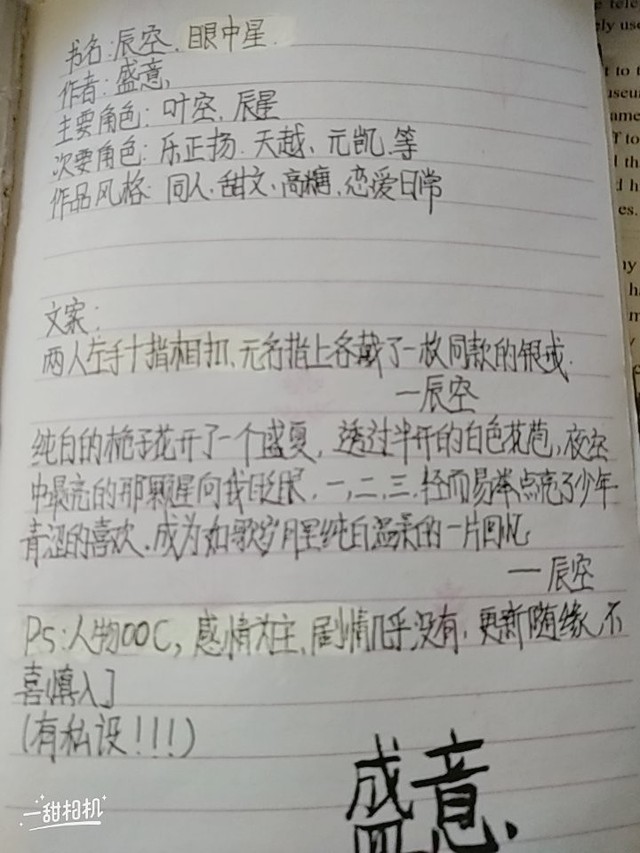 书名:辰空.眼中星.
作者:盛意,
主要角色:叶空、辰星
次要角色:乐正扬.天越、元凯.等
作品风格:同人、甜文、高糖、恋爱日常
文案:
两人左手十指相扣、无名指上各戴了一枚同款的银戒.
—辰空
纯白的栀子花开了一个盛夏,透过半开的白色花苞,夜空
中最亮的那颗星向我眨眼.一,二,三.轻而易举点亮了少年
青涩的喜欢.成为如歌岁月里纯白温柔的一片回忆
—辰空
Ps:人物OOC,感情为主、剧情几乎没有,更新随缘,不
喜慎入]
(有私设!!!)
盛意.
一甜相机
ely use
t to t
ame
es.